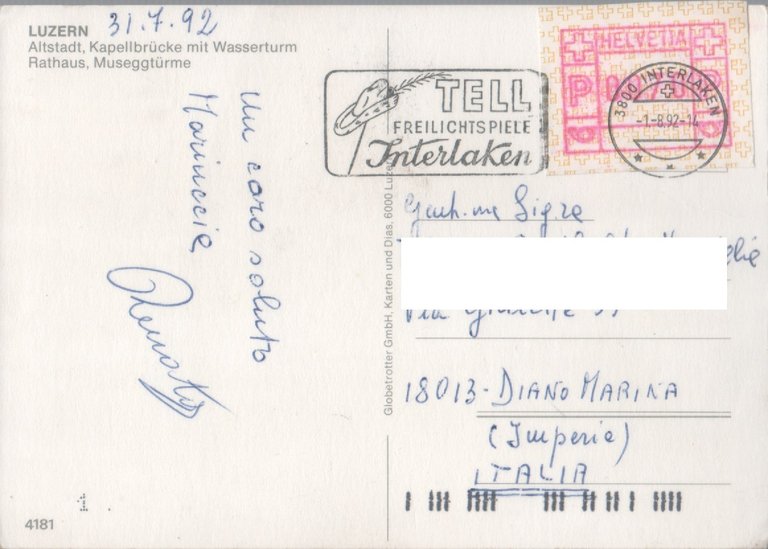 LUZERN 31.7.92
Altstadt, Kapellbrücke mit Wasserturm
Rathaus, Museggtürme
Un caro saluto
TELL
FREILICHTSPIELE
Interlaken
HELVETIA
P
3800 INTERLAKEN
-1.-8.92-14
Globetrotter GmbH, Karten und Dias, 6000 Luze
Via
18013 - DIANO MARINA
(Imperia)
ITALIA
1
4181